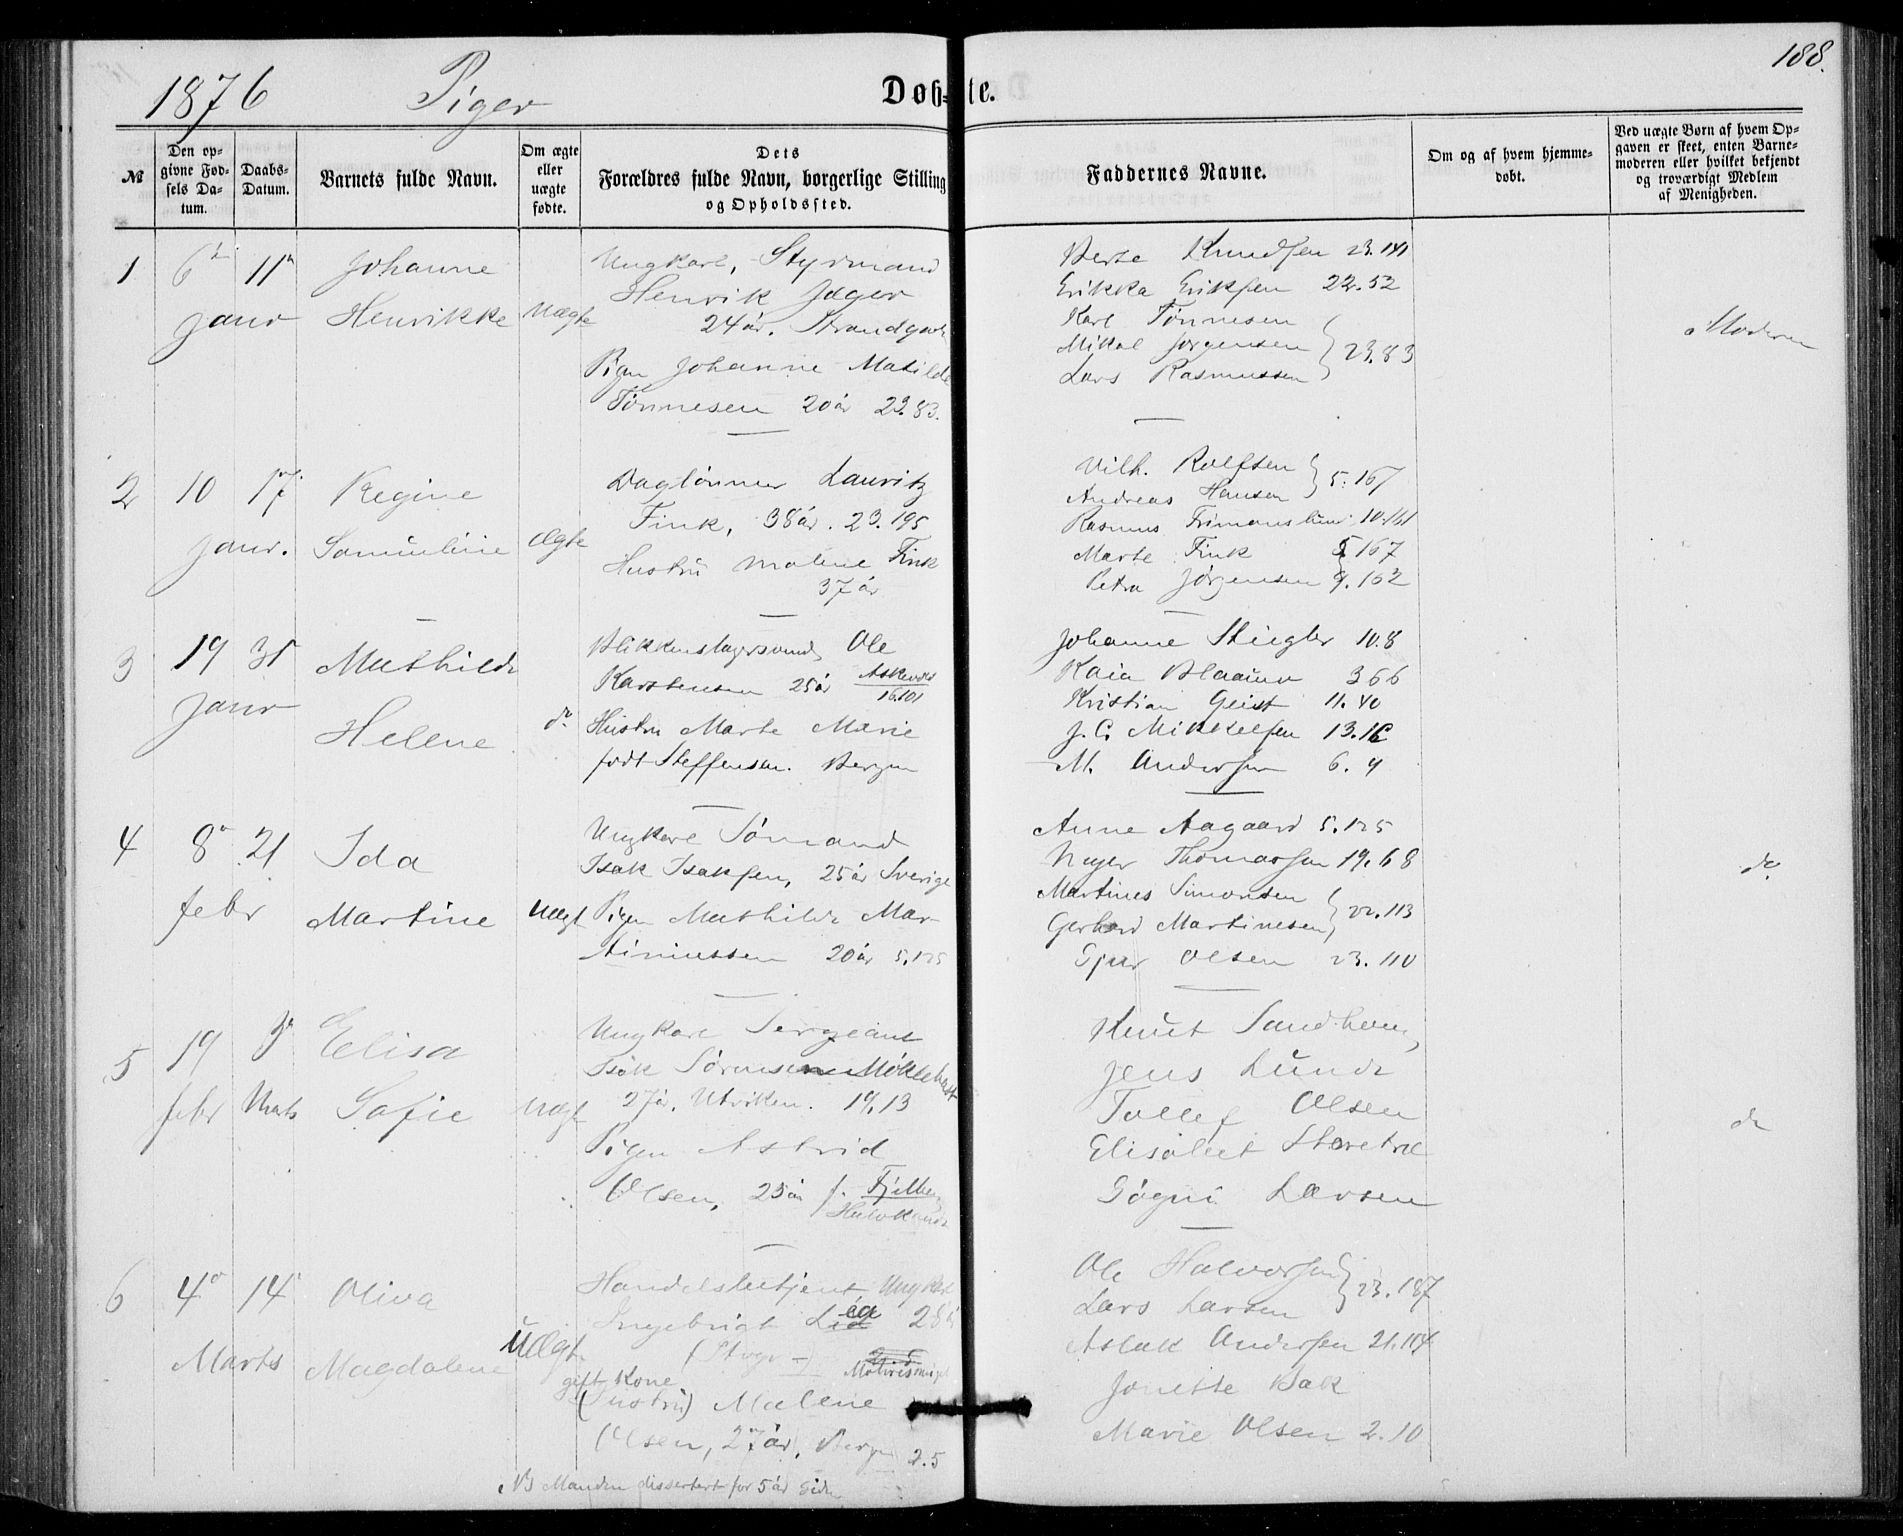 188.
1876 Piger Døb-te.
№
Den op-
givne Fød-
sels Da-
tum.
Daabs-
Datum.
Barnets fulde Navn.
Om ægte
eller
uægte
fødte.
Dets
Forældres fulde Navn, borgerlige Stilling
og Opholdssted.
Faddernes Navne.
Om og af hvem hjemme-
døbt.
Ved uægte Børn af hvem Op-
gaven er skeet, enten Barne-
moderen eller hvilket bekjendt
og troværdigt Medlem
af Menigheden.
1
6
Janr
11
Johanne
Henrikke
Uægte
Ungkarl, Styrmand
Henrik Jæger
24 år. Strandgad
Pigen Johanne Matilde
Tønnesen 20 år 23.83.
Berte Knudsen 23.141
Erikka Eriksen 22.52
Karl Tønnesen
Mikal Jørgensen } 23.83
Lars Rasmussen
Moderen
2
10
Janr.
17
Regine
Samuline
Ægte
Daglønner Lauritz
Fink, 38 år. 23.195
Hustru Malene Fink
37 år
Vilh. Rolfsen
Andreas Hansen } 5.167
Rasmus 10.161
Marte Fink 5 167
Petra Jørgensen 9.162
3
19
Janr
31
Mathilde
Helene
do
Blikkenslagersvend Ole
Karstensen 25 år Askevold
16.101
Hustru Marte Marie
født Steffensen. Bergen
Johanne Stiegler 10.8
Kaia Blaauw 366
Kristian Geist 11.40
J. C. Mikkelsen 13.16
M. Andersen 6.9
4
8
febr
21
Ida
Martine
Uægt
Ungkarl Sømand
Isak Isaksen, 25 år Sverige
Pigen Mathilde Mar-
tinussen 20 år 5.125
Anne Aagaard 5.125
Thomassen 19.68
Martines Simonsen
Gerhard Martinesen } 22.113
Olsen 23.110
do
5
19
febr
Marts
Elisa
Sofie
Uægt
Ungkarl Sergeant
Isak Sørensen Møklebust
27 år. Utviken. 19.13
Pigen Astrid
Olsen, 25 år f. Fjelberg
Knut Sandhoug
Jens Lunde
Tollef Olsen
Elisabet Storetvæ
Gøgni Larsen
do
6
4
Marts
14
Oliva
Magdalene
Uægt
Handelsbetjent Ungkarl
Ingebrigt 28 år
gift Kone
(Hustru) Malene
Olsen, 27 år, Bergen 2.5
NB Manden dissertert for 5 år siden
Ole Halvorsen
Lars Larsen } 23.187
Aslak Andersen 21.104
Jonette Bak
Marie Olsen 2.10